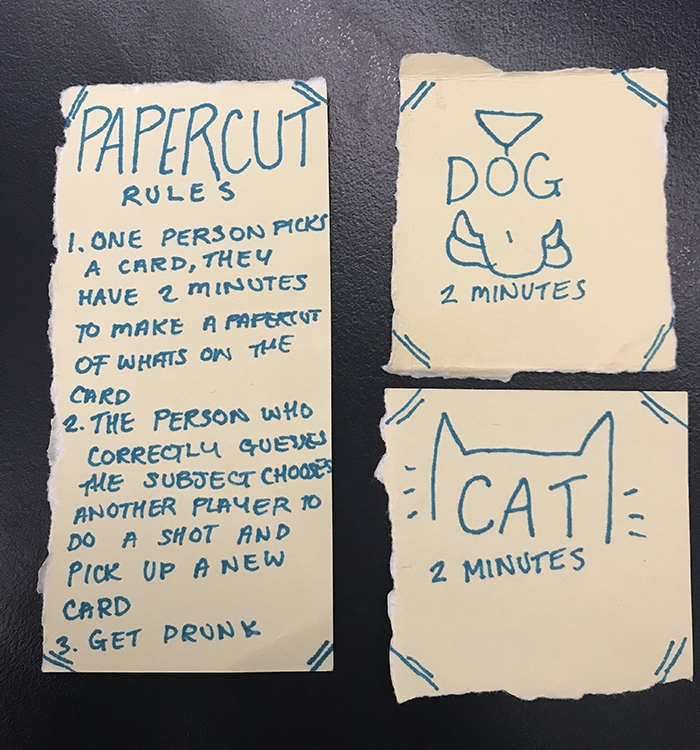 PAPERCUT
RULES
1. ONE PERSON PICKS
A CARD, THEY
HAVE 2 MINUTES
TO MAKE A PAPERCUT
OF WHATS ON THE
CARD
2. THE PERSON WHO
CORRECTLY GUESSES
THE SUBJECT CHOOSES
ANOTHER PLAYER TO
DO A SHOT AND
PICK UP A NEW
CARD
3. GET DRUNK
DOG
2 MINUTES
CAT
2 MINUTES